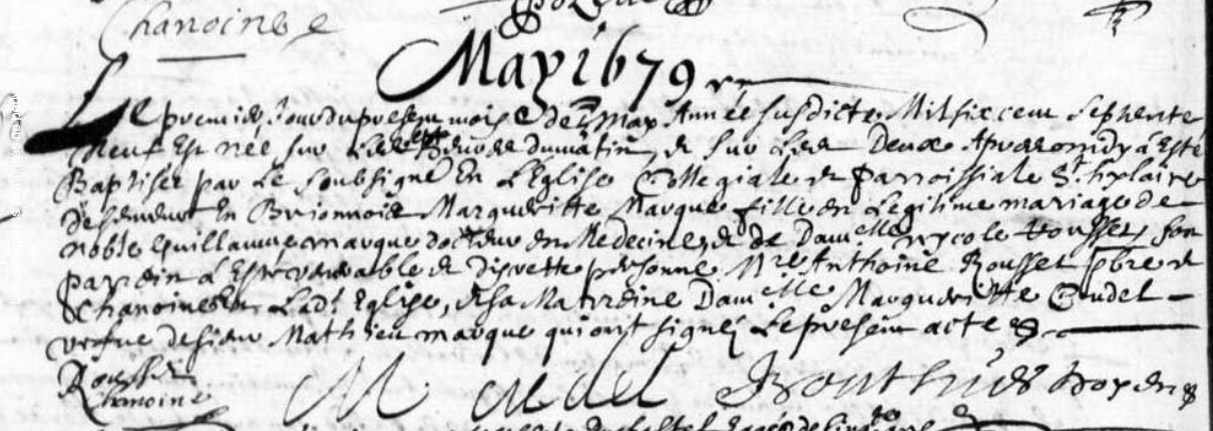 Chanoine
May 1679
Le premier Jour du present mois de May Année susdicte Mil six cent septente
neuf Est née sur les heures du matin, & sur Les Deux Apres midy à Esté
Baptisee par Le soubsigné En L'Eglise Collegiale & Parroissiale St hylaire
de Semeur En Brionnois Margueritte Marque fille en Legitime mariage de
noble Guillaume marque docteur en Medecine, & de Damelle Nycole Rousset, son
parrein à Esté venerable & discrette personne Mre Anthoine Rousset pbre &
Chanoine En Ladt Eglise, & sa Marreine Damelle Margueritte Cudel
vefve de sieur Mathieu marque qui ont signé Le present acte &
Rousset
Chanoine M Cudel Bonthier doyen